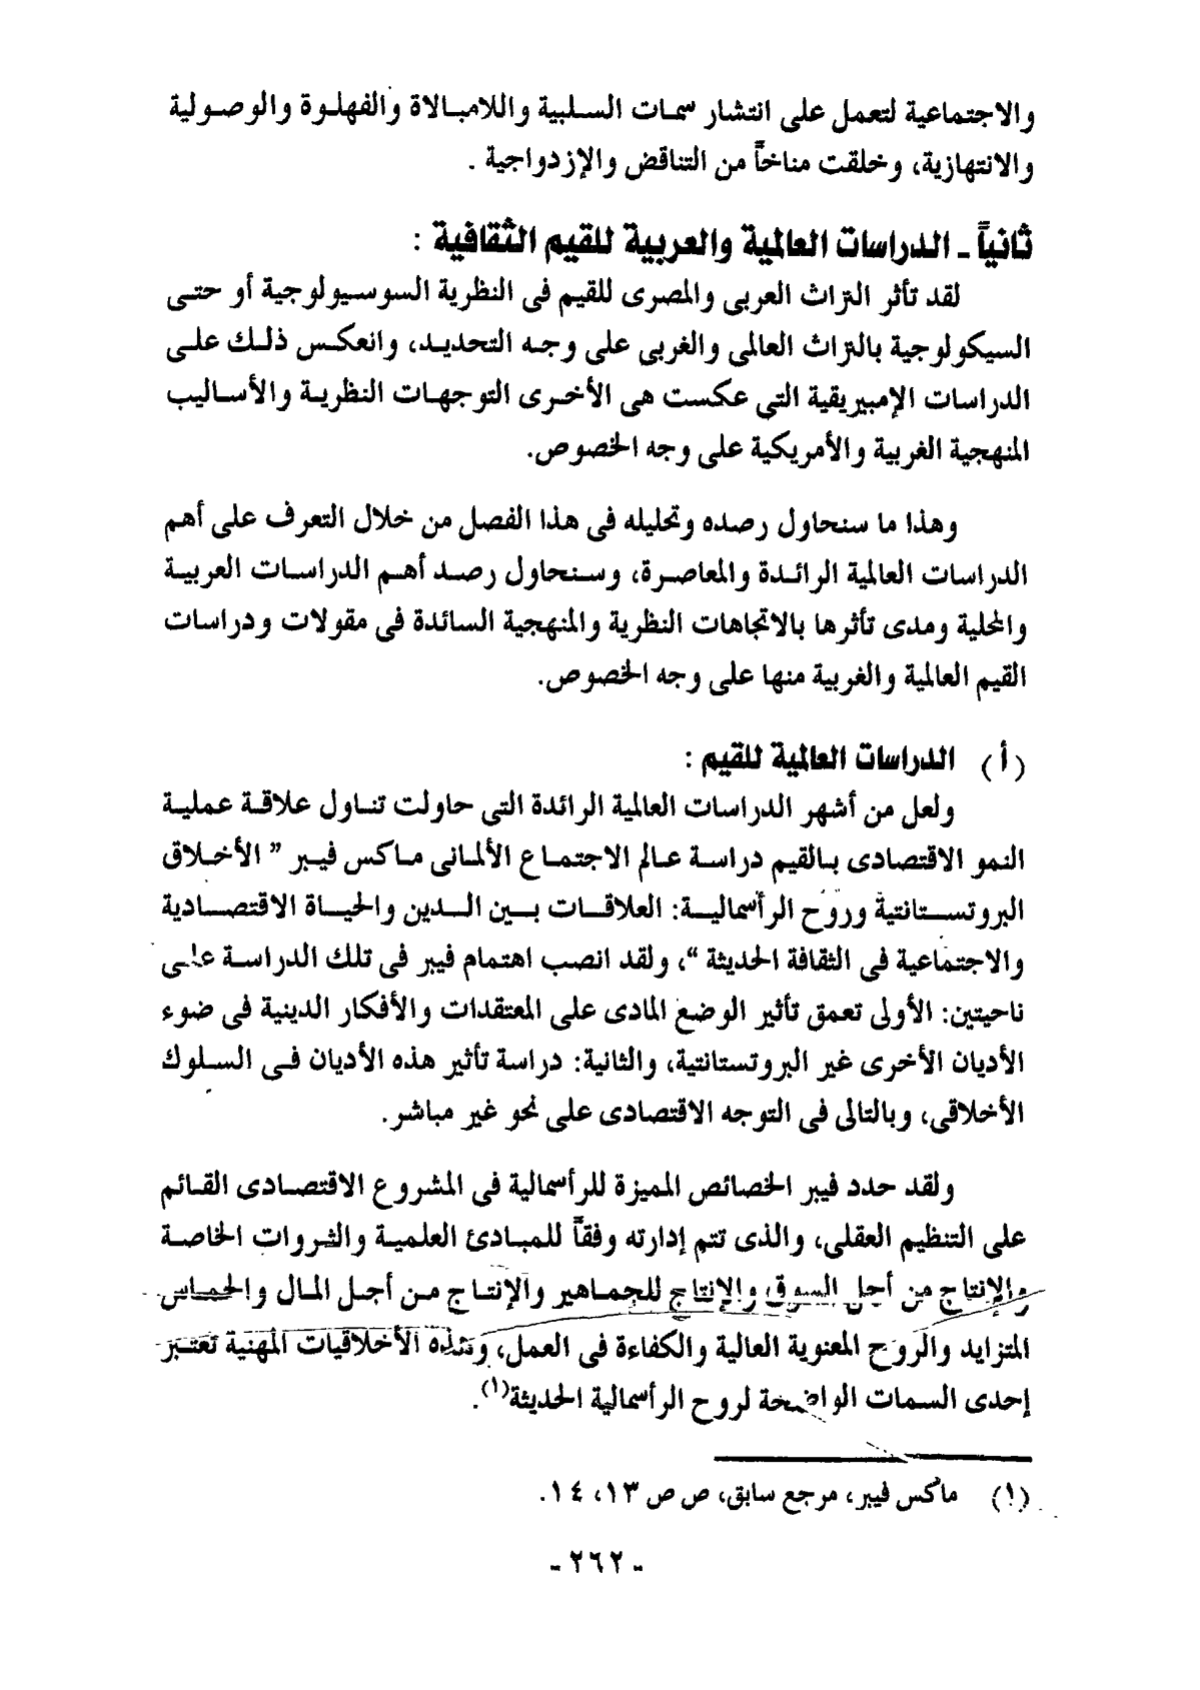 والاجتماعية لتعمل على انتشار سمات السلبية واللامبالاة والفهلوة والوصولية
والانتهازية، وخلقت مناخاً من التناقض والإزدواجية .
ثانياً ـ الدراسات العالمية والعربية للقيم الثقافية :
لقد تأثر التراث العربى والمصرى للقيم فى النظرية السوسيولوجية أو حتى
السيكولوجية بالتراث العالمى والغربى على وجه التحديد، وانعكس ذلك على
الدراسات الإمبيريقية التى عكست هى الأخرى التوجهات النظرية والأساليب
المنهجية الغربية والأمريكية على وجه الخصوص.
وهذا ما سنحاول رصده وتحليله فى هذا الفصل من خلال التعرف على أهم
الدراسات العالمية الرائدة والمعاصرة، وسنحاول رصد أهم الدراسات العربية
والمحلية ومدى تأثرها بالاتجاهات النظرية والمنهجية السائدة فى مقولات ودراسات
القيم العالمية والغربية منها على وجه الخصوص.
(أ) الدراسات العالمية للقيم :
ولعل من أشهر الدراسات العالمية الرائدة التى حاولت تناول علاقة عملية
النمو الاقتصادى بالقيم دراسة عالم الاجتماع الألمانى ماكس فيبر " الأخلاق
البروتستانتية وروح الرأسمالية: العلاقات بين الدين والحياة الاقتصادية
والاجتماعية فى الثقافة الحديثة "، ولقد انصب اهتمام فيبر فى تلك الدراسة على
ناحيتين: الأولى تعمق تأثير الوضع المادى على المعتقدات والأفكار الدينية فى ضوء
الأديان الأخرى غير البروتستانتية، والثانية: دراسة تأثير هذه الأديان فى السلوك
الأخلاقى، وبالتالى فى التوجه الاقتصادى على نحو غير مباشر.
ولقد حدد فيبر الخصائص المميزة للرأسمالية فى المشروع الاقتصادى القائم
على التنظيم العقلى، والذى تتم إدارته وفقاً للمبادئ العلمية والثروات الخاصة
والإنتاج من أجل السوق والإنتاج للجماهير والإنتاج من أجل المال والحماس
المتزايد والروح المعنوية العالية والكفاءة فى العمل، وهذه الأخلاقيات المهنية تعتبر
إحدى السمات الواضحة لروح الرأسمالية الحديثة(١).
(١) ماكس فيبر، مرجع سابق، ص ص ١٣، ١٤.
- ٢٦٢ -